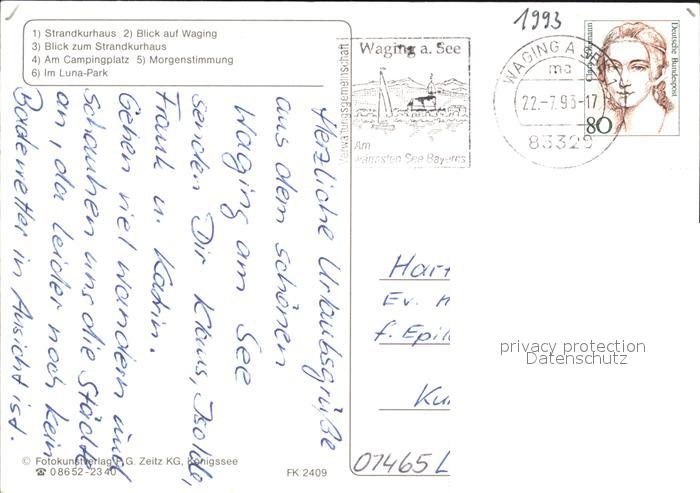 1) Strandkurhaus 2) Blick auf Waging
3) Blick zum Strandkurhaus
4) Am Campingplatz 5) Morgenstimmung
6) Im Luna-Park
Herzliche Urlaubsgrüße
aus dem schönen
Waging am See
senden Dir Klaus, Isolde,
Frank u. Katrin.
Gehen viel wandern und
schauhen uns die Städte
an, da leider noch kein
Badewetter in Aussicht ist.
© Fotokunstverlag F.G. Zeitz KG, Königssee
☎ 08652-2340
FK 2409
1993
Verwaltungsgemeinschaft
Waging a. See
Am
wärmsten See Bayerns
WAGING A. SEE
ma
22.-7.93-17
83329
Deutsche Bundespost
80
Hart
Ev.
f. Epil
Ku
07465 L
privacy protection
Datenschutz